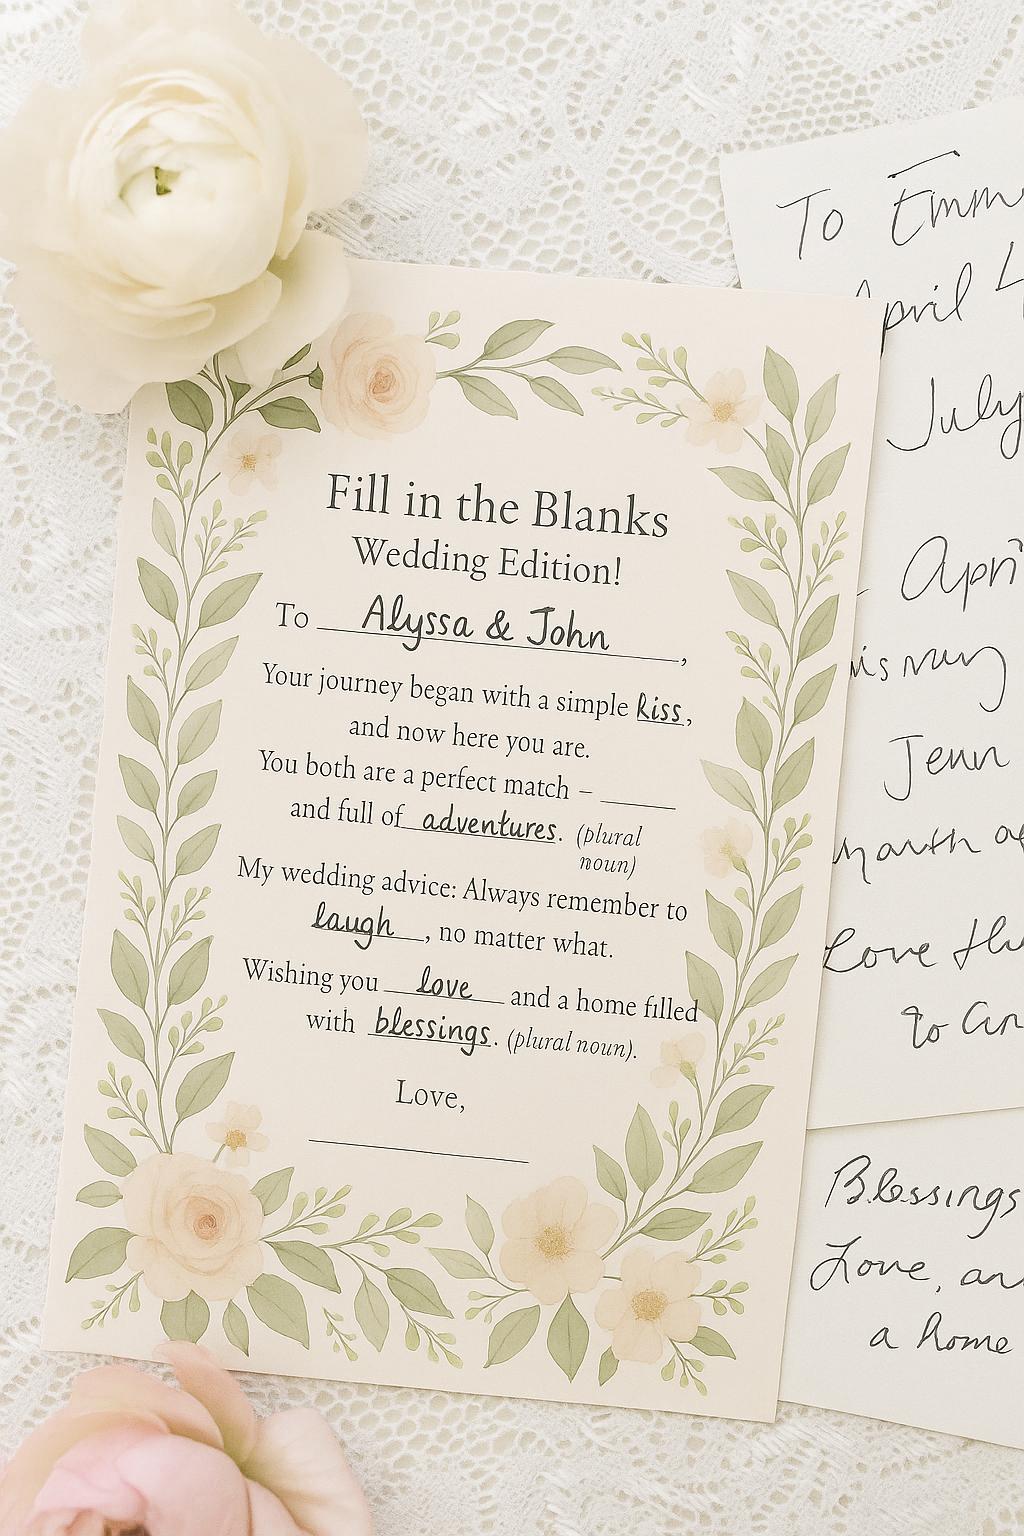 Fill in the Blanks
Wedding Edition!
To Alyssa & John,
Your journey began with a simple kiss,
and now here you are.
You both are a perfect match – ______
and full of adventures. (plural
noun)
My wedding advice: Always remember to
laugh, no matter what.
Wishing you love and a home filled
with blessings. (plural noun).
Love,
To Emm
April 4
July
Apri
Jenn
Love
to
Blessings
Love, an
a home